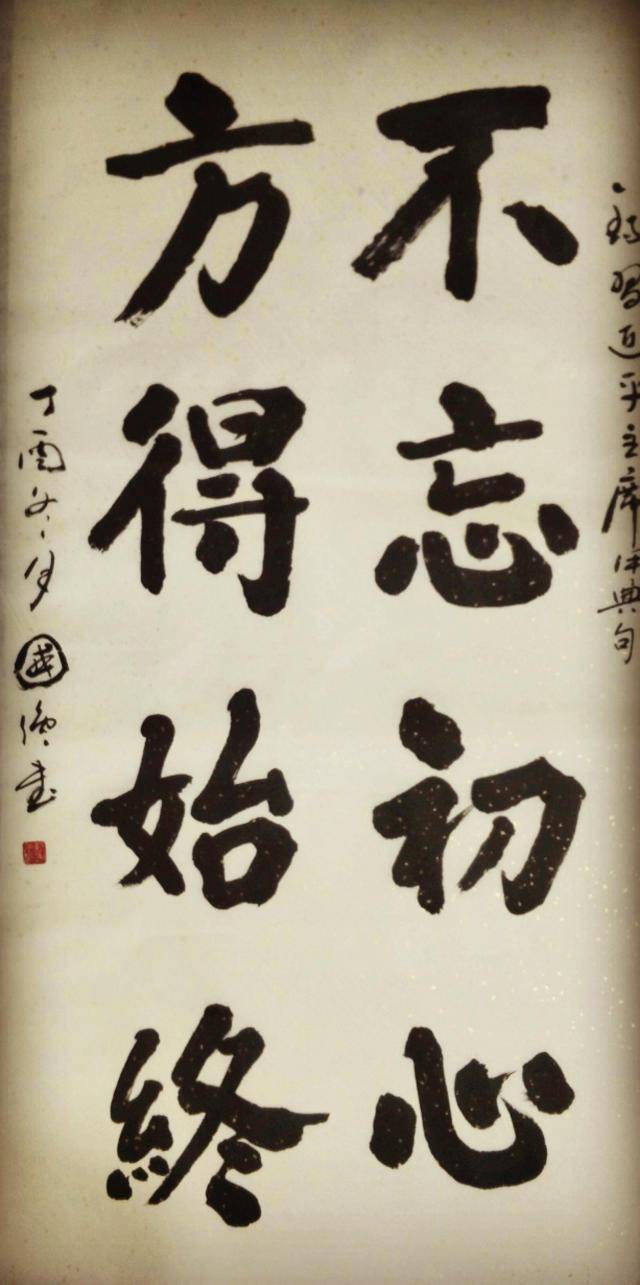 錄習近平主席用典句
不忘初心
方得始終
丁酉冬月國偉書